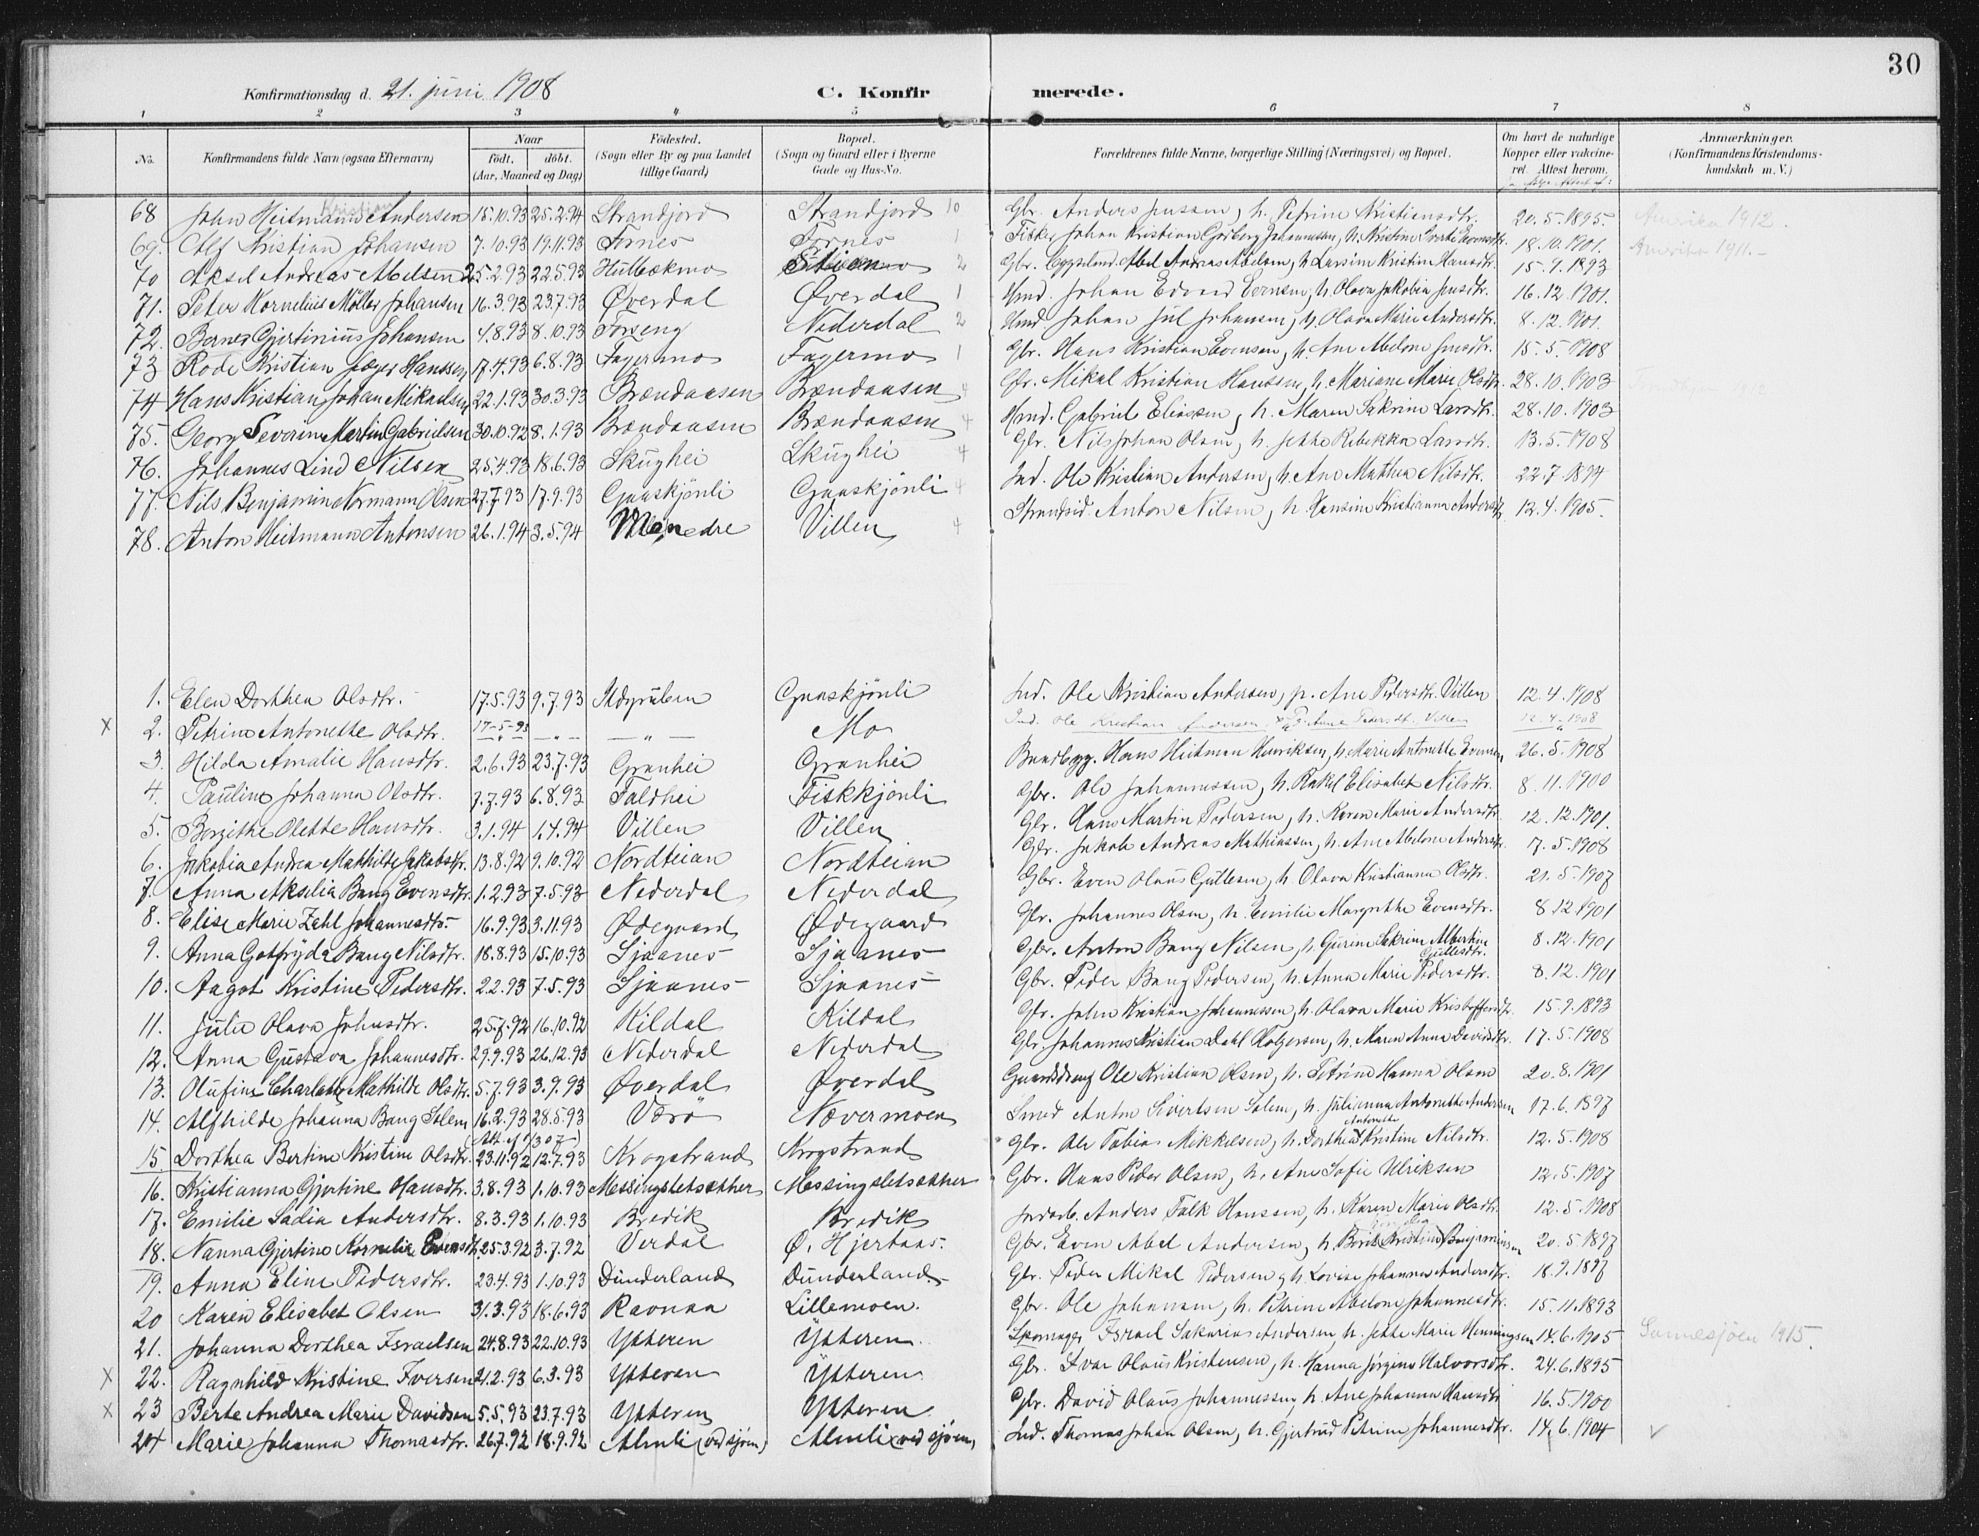 30
Konfirmationsdag d. 21. juni 1908 C. Konfirmerede.
1 2 3 4 5 6 7 8
No. Konfirmandens fulde Navn (ogsaa Efternavn) Naar født. døbt. (Aar, Maaned og Dag) Fødested. (Sogn eller By og paa Landet tillige Gaard) Bopæl. (Sogn og Gaard eller i Byerne Gade og Hus-No. Forældrenes fulde Navne, borgerlige Stilling (Næringsvei) og Bopæl. Om havt de naturlige Kopper eller vakcineret. Attest herom. Anmærkninger. (Konfirmandens Kristendomskundskab m.V.)
Kristian
68 John Heitmann Andersen 15.10.93 25.2.94 Strandjord Strandjord 10 Gbr. Anders Jenssen, h. Petrine Kristiensdtr. 20.5.1895. Amerika 1912.
69. Alf Kristian Johansen 7.10.93 19.11.93 Fornes Fornes 1 Fisker Johan Kristian Johannesen, h. Kristine 18.10.1901. Amerika 1911.-
70 Aksel Andreas Abelsen 25.2.93 22.5.93 Hulbækmo 2 Gbr. Abel Andreas Abelsen, h. Larsine Kristine Hansdtr. 15.9.1893
71. Peter Kornelius Möller Johansen 16.3.93 23.7.93 Øverdal Øverdal 1 Hmd. Johan Edvard Evensen, h. Olava Jakobia Jensdtr. 16.12.1901.
72. Bernes Gjertinius Johansen 4.8.93 8.10.93 Forseng Nederdal 2 Hmd. Johan Jul Johansen, h. Olava Marie Andersdtr. 8.12.1901.
73 Rode Kristian Jæger Hanssen 17.4.93 6.8.93 Fagermo Fagermo 1 Gbr. Hans Kristian Evensen, h. Ane Abelone Jensdtr. 15.5.1908
74 Hans Kristian Johan Mikaelsen 22.1.93 30.3.93 Brændaasen Brændaasen 4 Gbr. Mikal Kristian Hansen, h. Mariane Marie Olsdtr. 28.10.1903 1912
75. Georg Severin Martin Gabrielsen 30.10.92 8.1.93 Brændaasen Brændaasen 4 Hmd. Gabriel Eliassen, h. Maren Sakrine Larsdtr. 28.10.1903
76. Johannes Lind Nilsen 25.4.93 18.6.93 Skughei Skughei 4 Gbr. Nils Johan Olsen, h. Jethe Rebekka Larsdtr. 13.5.1908
77. Nils Benjamin Normann Olsen 27.7.93 17.9.93 Graaskjönli Graaskjönli 4 Ind. Ole Kristian Andersen, h. Ane Mathea Nilsdtr. 22.7.1894
78. Anton Heitmann Antonsen 26.1.94 3.5.94 Villen 4 Strandsid. Anton Nilsen, h. Hansine Kristianna Andersdtr. 12.4.1905.
1. Elen Dorthea Olsdtr. 17.5.93 9.7.93 Ildgruben Graaskjönli Ind. Ole Kristian Andersen, p. Ane Pedersdtr. Villen 12.4.1908
x 2. Petrine Antonette Olsdtr. 17-5-93 - „ - - „ - Mo Ind. Ole Kristian Andersen, p. Ane Pedersdtr. Villen 12.4.1908
3. Hilda Amalie Hansdtr. 2.6.93 23.7.93 Granhei Granhei Hans Heitman Henriksen, h. Marie Antonette Evensen 26.5.1908
4. Pauline Johanna Olsdtr. 7.7.93 6.8.93 Faldhei Fiskkjönli Gbr. Ole Johannessen, h. Rakel Elisabet Nilsdtr. 8.11.1900
5. Bergithe Olette Hansdtr. 3.1.94 1.4.94 Villen Villen Gbr. Hans Martin Pedersen, h. Karen Marie Andersdtr. 12.12.1901.
6. Jakobia Andrea Mathilde Jakobsdtr. 13.8.92 9.10.92 Nordteian Nordteian Gbr. Jakob Andreas Mathiassen, h. Ane Abelone Andersdtr. 17.5.1908
7. Anna Aksilia Bang Evensdtr. 1.2.93 7.5.93 Nederdal Nederdal Gbr. Even Olaus Gullesen, h. Olava Kristianna Olsdtr. 21.5.1907
8. Elise Marie Zahl Johannesdtr. 16.9.93 3.11.93 Ødegaard Ødegaard Gbr. Johannes Olsen, h. Emilie Margrethe Evensdtr. 8.12.1901
9. Anna Gotfryda Bang Nilsdtr. 18.8.93 15.10.93 Sjaanes Sjaanes Gbr. Anton Bang Nilsen, h. Gurine Sakrine Albertine Gullesdtr. 8.12.1901
10. Aagot Kristine Pedersdtr. 2.2.93 7.5.93 Sjaanes Sjaanes Gbr. Peder Bang Pedersen, h. Anna Marie Pedersdtr. 8.12.1901
11. Julie Olava Johnsdtr. 25.7.92 16.10.92 Kildal Kildal Gbr. John Kristian Johannessen, h. Olava Marie Kristoffersdtr. 15.9.1893
12. Anna Gustava Johannesdtr. 29.9.93 26.12.93 Nederdal Nederdal Gbr. Johannes Kristian Dahl Holgersen, h. Maren Anna Davidsdtr. 17.5.1908
13. Olufine Charlotte Mathilde Olsdtr. 5.7.93 3.9.93 Øverdal Øverdal Gaarddreng Ole Kristian Olsen, h. Petrine Hanna Olsen 20.8.1901
14. Alfhilde Johanna Bang Selem 16.2.93 28.5.93 Værö Nævermoen Smed Anton Sivertsen Selem, h. Julianna Antonette Andersen 17.6.1897
15 Dorthea Bertine Kristine Olsdtr. 23.11.92 12.7.93 Krogstrand Krogstrand Gbr. Ole Tobias Mikkelsen, h. Dorthea Antonette Kristine Nilsdtr. 12.5.1908
16. Kristianna Gjertine Hansdtr. 3.8.93 1.10.93 Messingsletsætter Messingsletsætter Gbr. Hans Peder Olsen, h. Ane Sofie Ulriksen 12.5.1907
17. Emilie Sadia Andersdtr. 8.3.93 1.10.93 Bredik Bredik Jordarb. Anders Falk Hanssen, h. Karen Marie Olsdtr. 12.5.1908
18. Nanna Gjertine Kornelie Evensdtr. 25.3.92 3.7.92 Verdal Ø. Hjertaas. Gbr. Even Abel Andersen, h. Berit Kristine Benjaminsen 20.5.1897
19. Anna Eline Pedersdtr. 23.4.93 1.10.93 Dunderland Dunderland Gbr. Peder Mikal Pedersen, h. Lovise Johanna Andersdtr. 18.9.1897
20 Karen Elisabet Olsen 31.3.93 18.6.93 Ravnaa Lillemoen. Gbr. Ole Johansen, h. Petrine Abelone Johannesdtr. 15.11.1893
21. Johanna Dorthea Israelsen 24.8.93 22.10.93 Ytteren Ytteren Skomager Israel Sakarias Andersen, h. Jette Marie Henningsen 14.6.1905 Sannesjöen 1915.
x 22. Ragnhild Kristine Iversen 21.2.93 6.3.93 Ytteren Ytteren Gbr. Ivar Olaus Kristensen, h. Hanna Jørgine Halvorsdtr. 24.6.1895
x 23 Berte Andrea Marie Davidsen 5.5.93 23.7.93 Ytteren Ytteren Gbr. David Olaus Johannessen, h. Ane Johanna Hansdtr. 16.5.1900
24 Marie Johanna Thomasdtr. 26.7.92 18.9.92 Almli (ved sjøen) Almli (ved sjøen) Ind. Thomas Johan Olsen, h. Gjertrud Petrine Johannesdtr. 14.6.1904